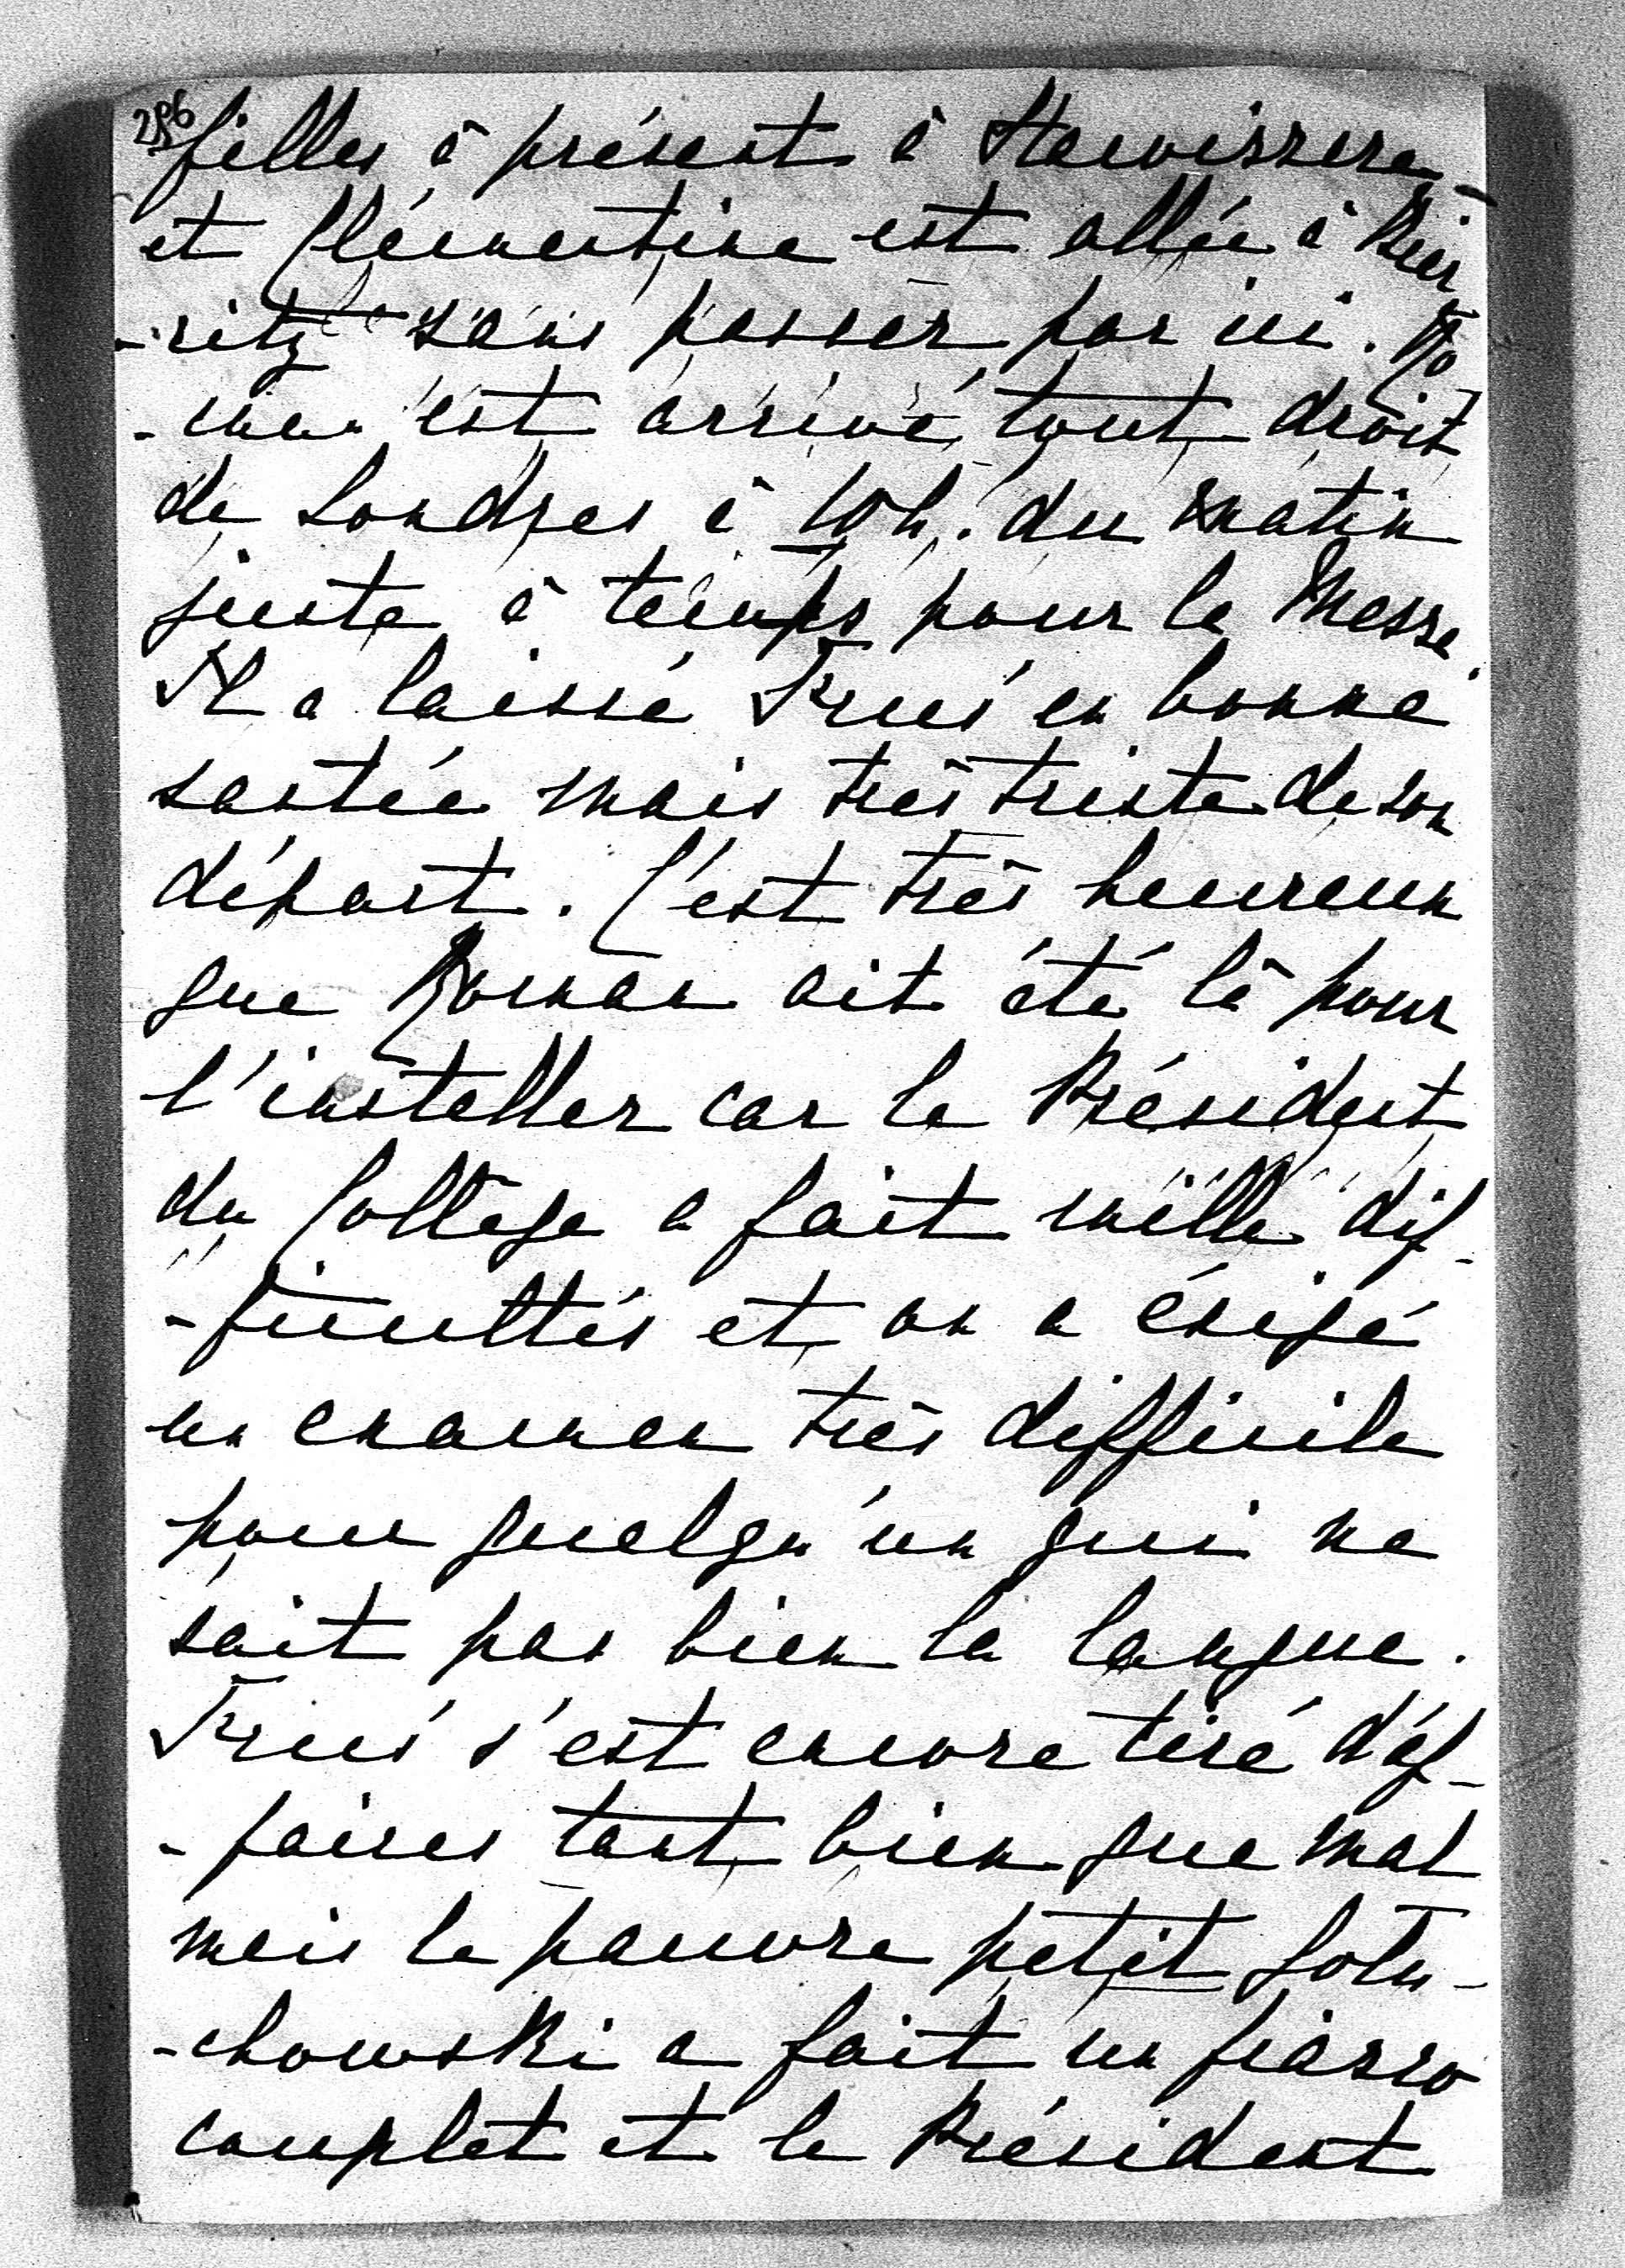 286
filles à présent à Stawiszcze
et Clémentine est allée à Biar
-ritz sans passer par ici. Ro
-man est arrivé tout droit
de Londres à 10h. du matin
juste à temps pour la Messe.
Il a laissé Fricí en bonne
santée mais très triste de son
départ. C'est très heureux
que Roman ait été là pour
l'installer car le Président
du Collège a fait mille dif-
-ficultés et on a éxigé
un examen très difficile
pour quelqu'un qui ne
sait pas bien la langue.
s'est encore tiré d'af-
-faires tant bien que mal
mais le pauvre petit Golu-
-chowski a fait un fiasco
complet et le Président